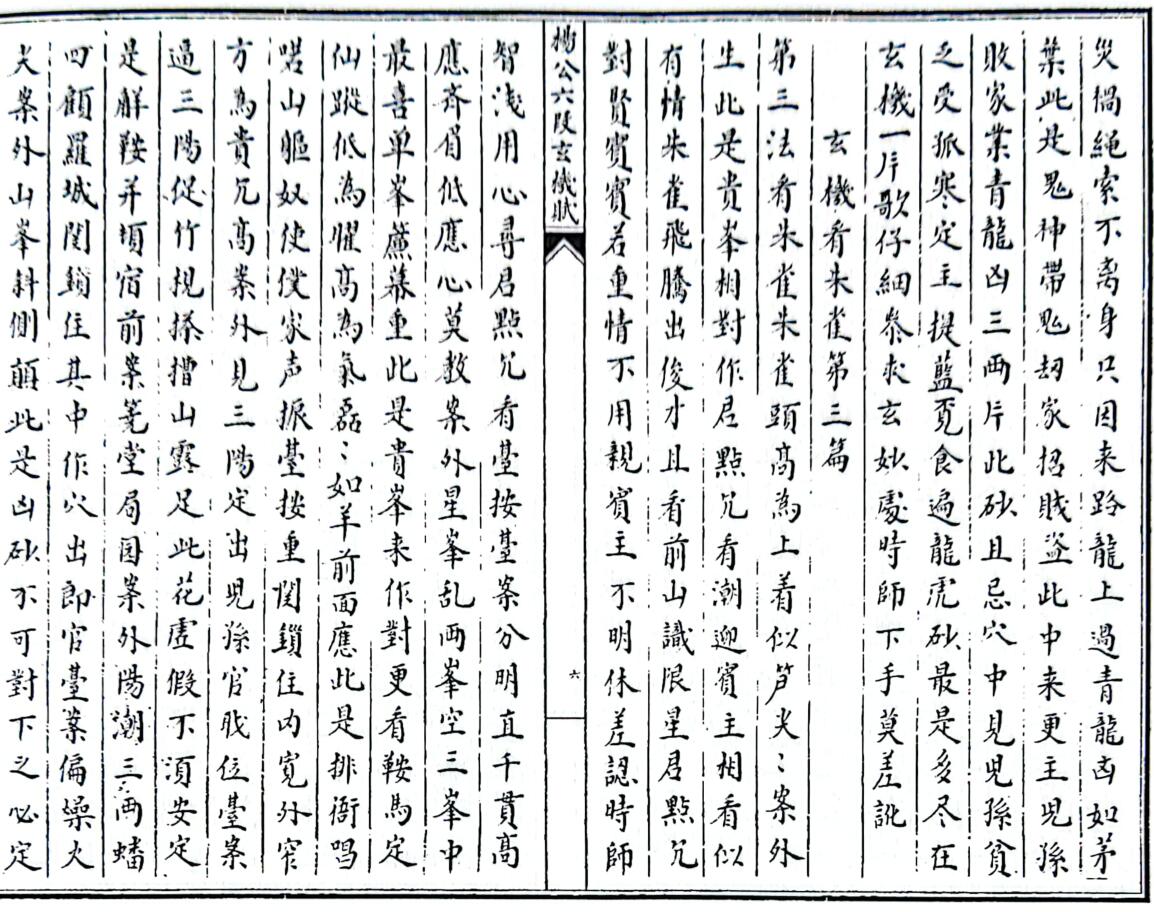 災禍繩索不离身只因来路龍上過青龍凶如茅
葉此是鬼神帶鬼刼家招賊盗此中来更主児孫
敗家業青龍凶三両片此砂且忌穴中見児孫貧
乏受孤寒定主提藍覔食遍龍虎砂最是多尽在
玄機一片歌仔細叅求玄妙處時師下手莫差訛
玄機看朱雀第三篇
第三法看朱雀朱雀頭髙為上着似笋尖〻案外
生此是贵峯相對作君點穴看潮迎賓主相看似
有情朱雀飛騰出俊才且看前山識限星君點穴
對賢賓賓若重情不用親賓主不明休差認時師
楊公六段玄機賦
六
智浅用心尋君點穴看臺按臺案分明直千貫髙
應齐眉低應心莫教案外星峯乱両峯空三峯中
最喜单峯蔗幕重此是貴峯来作對更看鞍馬定
仙蹤低為懼髙為氣磊〻如羊前面應此是排衙唱
喏山軀奴使僕家声振臺按重関鎖住内寛外窄
方為貴穴髙案外見三陽定出児孫官戝位臺案
逼三陽促竹規搽擔山露足此花虚假不須安定
是觧鞍并頓宿前案篭堂局囯案外陽潮三両蟠
四顧羅城関鎖住其中作穴出即官臺案偏燥火
尖案外山峯斜側顛此是凶砂不可對下之必定